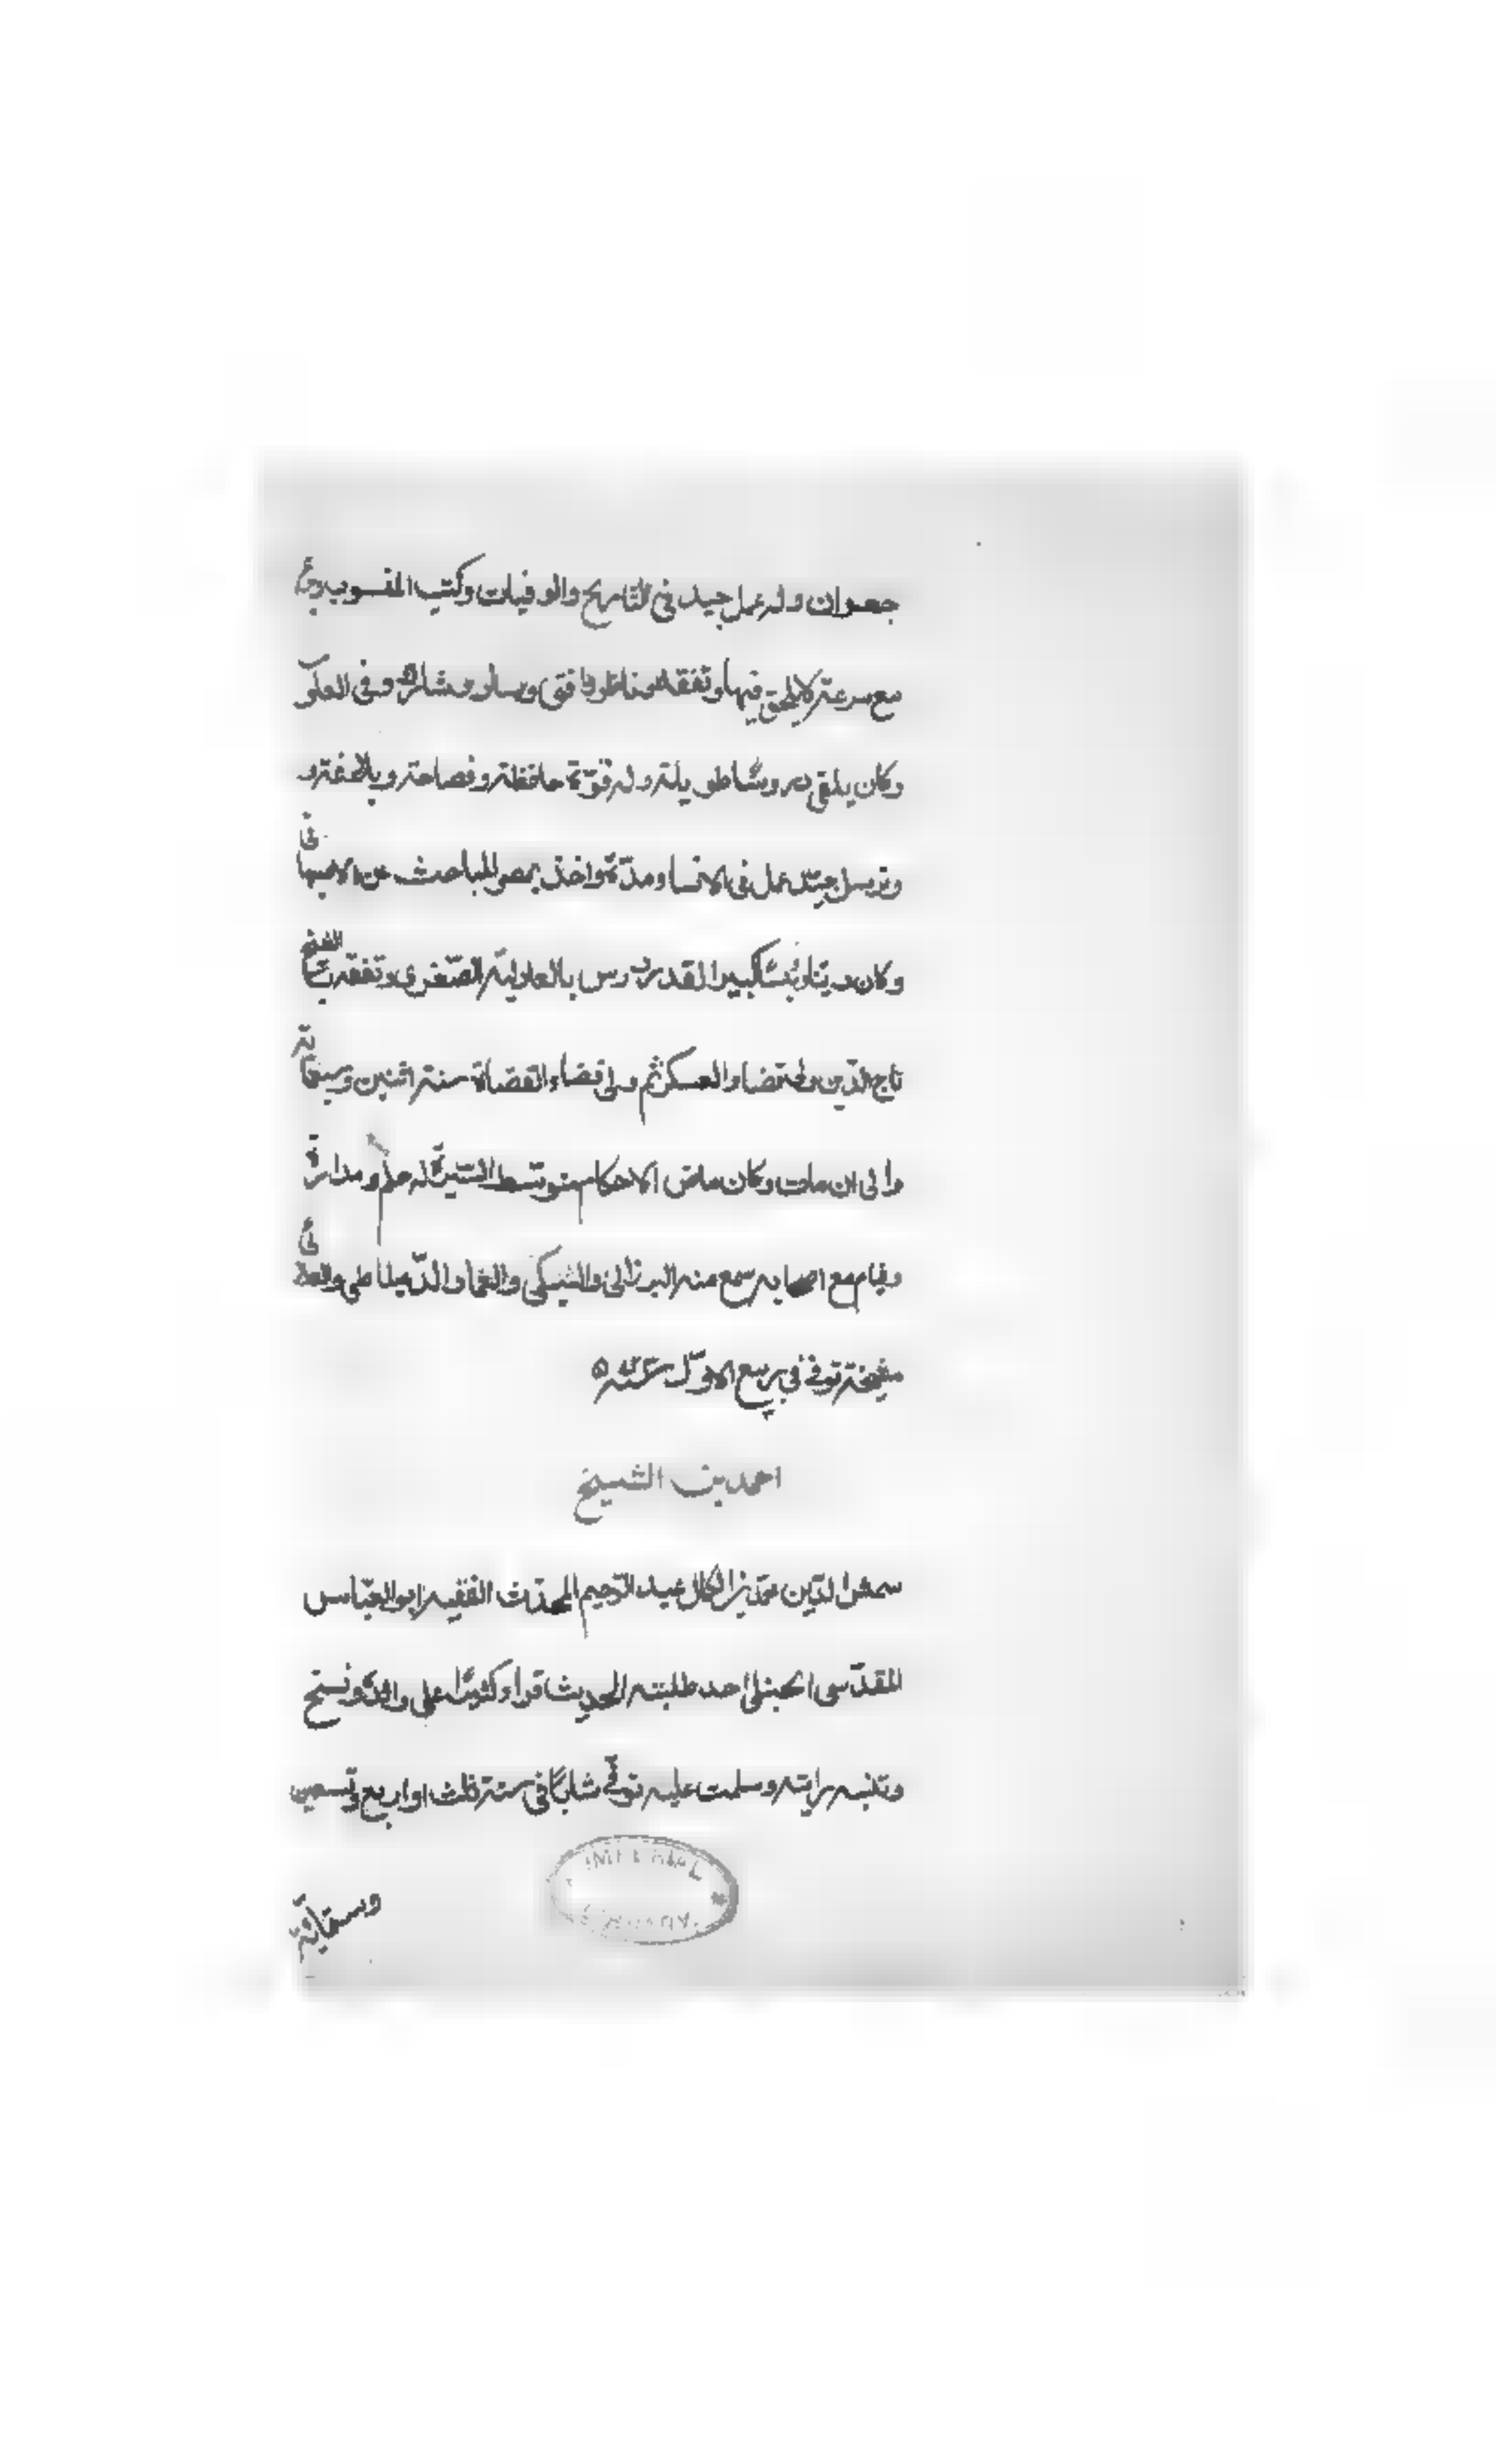 جعوان وله عمل جيد في التاريخ والوفيات وكتب المنسوب
مع سرعة لا يلحق فيها وتفقه وناظر وافتى وساد ومشاركة وفي العلم
وكان يلقى دروسا طويلة وله قوة حافظة وفصاحة وبلاغة و
وترسل جيد عمل في الانشا مدة واخذ بمصر المباحث عن الاصبهانى
وكان دينا وبشا كبير القدر درس بالعادلية الصغرى وتفقه بالشيخ
تاج الدين ولى قضاء العسكر ثم ولى قضاء القضاة سنة اثنين وسبعمائة
والى ان مات وكان ماض الاحكام متوسط السيرة له حلم ومداراة
وقيام مع اصحابه سمع منه البرزالى والسبكى والدمياطى والعلائى
مشيخة توفى في ربيع الاول سنة
احمد بن الشيخ
شمس الدين محمد بن الكمال عبد الرحيم المحدث الفقيه ابو العباس
المقدسى الحنبلى احد طلبة الحديث قراء كثيرا على والده ونسخ
وتنبه رايته وسلمت عليه توفى شابا فى سنة ثلث او اربع وتسعين
وستمائة